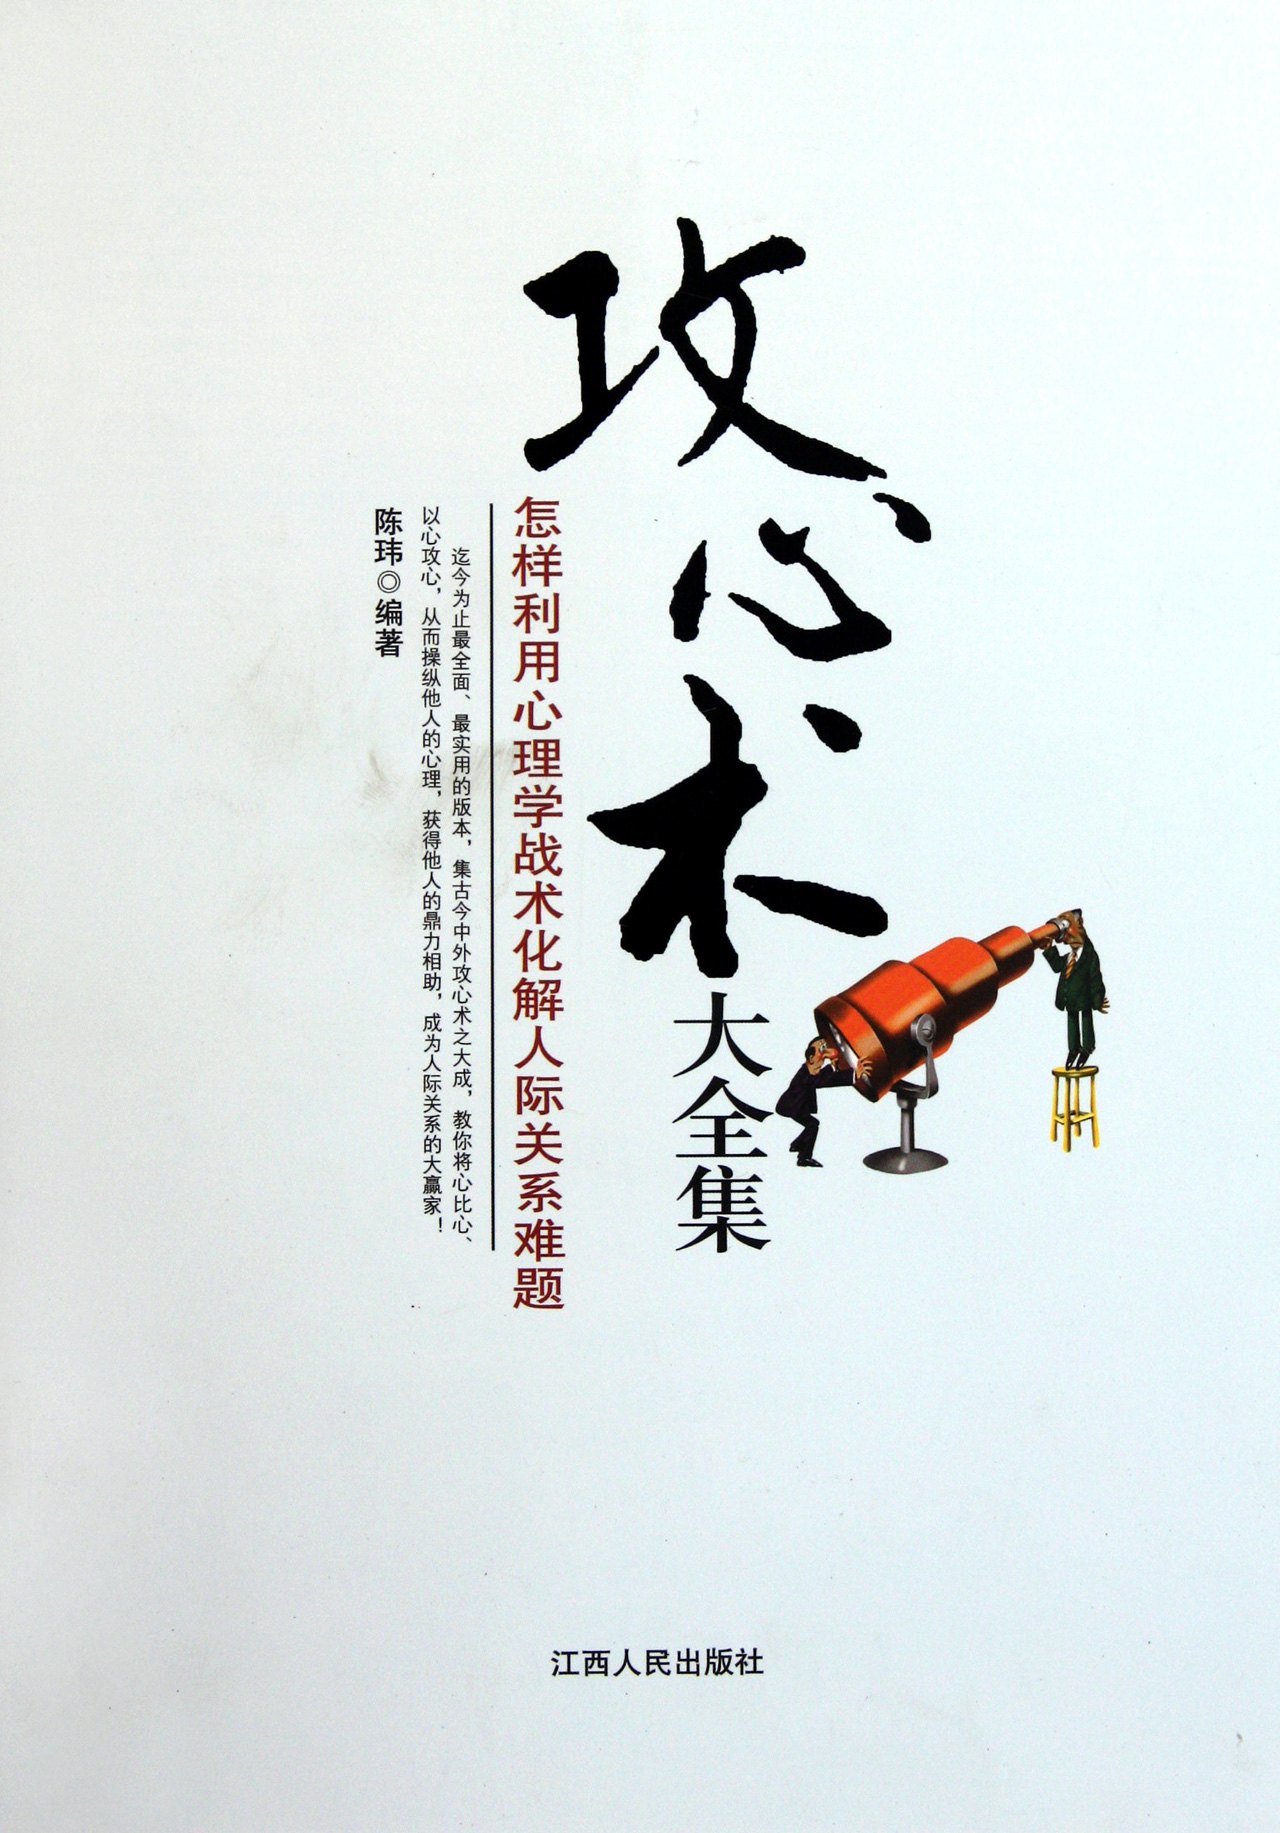 攻心术
大全集
怎样利用心理学战术化解人际关系难题
迄今为止最全面、最实用的版本，集古今中外攻心术之大成，教你将心比心、
以心攻心，从而操纵他人的心理，获得他人的鼎力相助，成为人际关系的大赢家！
陈玮◎编著
江西人民出版社